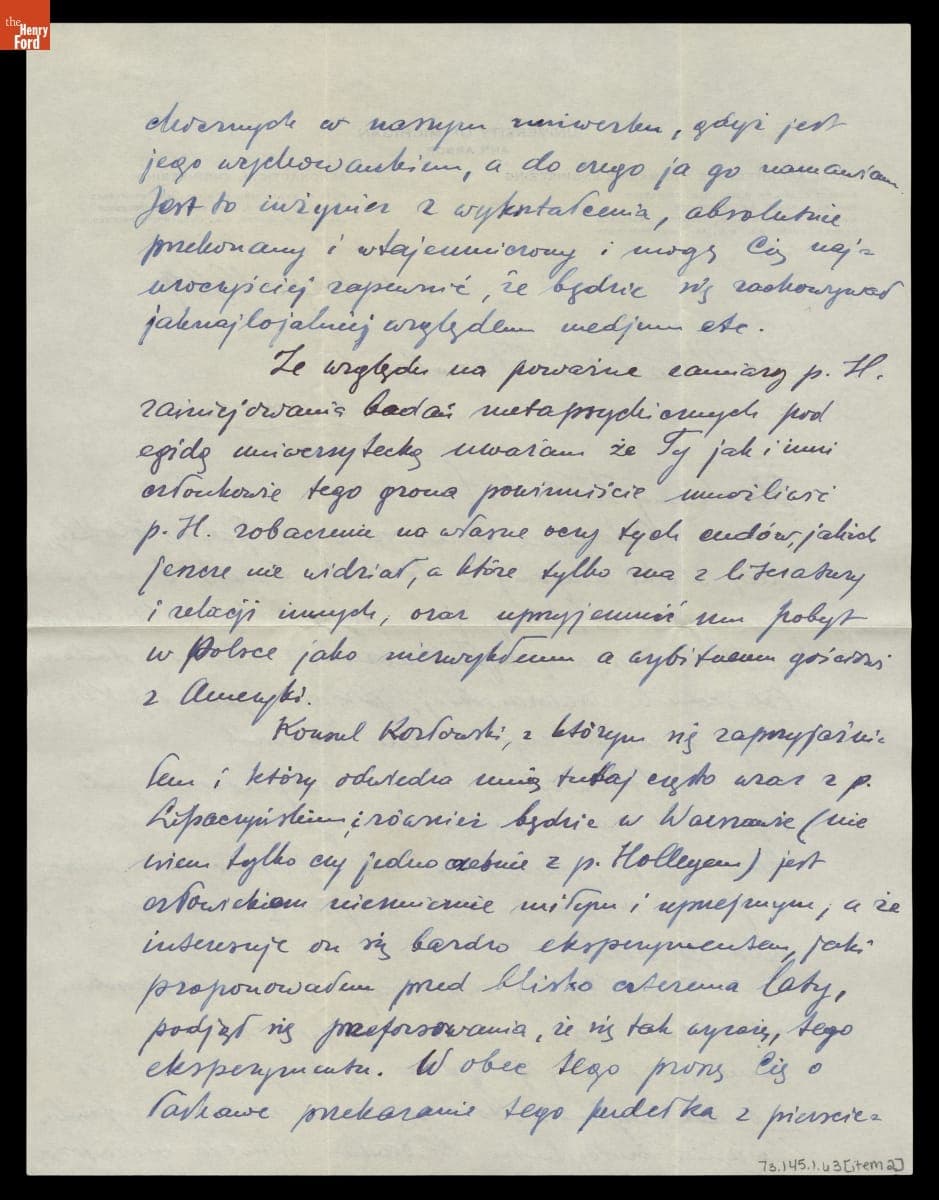 the
Henry
Ford
chicznych w naszym uniwerku, gdyż jest
jego wychowankiem, a do czego ja go namawiam.
Jest to inżynier z wykształcenia, absolutnie
przekonany i wtajemniczony i mogę Cię naj=
uroczyściej zapewnić, że będzie się zachowywał
jaknajlojalniej względem medjum etc.
Ze względu na poważne zamiary p. H.
zainicjowania badań metapsychicznych pod
egidą uniwersytecką uważam że Ty jak i inni
członkowie tego grona powinniście umożliwić
p. H. zobaczenie na własne oczy tych cudów, jakich
jeszcze nie widział, a które tylko zna z literatury
i relacji innych, oraz uprzyjemnić mu pobyt
w Polsce jako niezwykłemu a wybitnemu gościowi
z Ameryki.
Konsul Kozłowski, z którym się zaprzyjaźni=
łem i który odwiedza mnię tutaj często wraz z p.
Lipaczyńskim, również będzie w Warszawie (nie
wiem tylko czy jednocześnie z p. Holleyem) jest
człowiekiem niezmiernie miłym i uprzejmym, a że
interesuje on się bardzo eksperymentem, jaki
proponowałem przed blisko czterema laty,
podjął się przeforsowania, że się tak wyrażę, tego
eksperymentu. W obec tego proszę Cię o
łaskawe przekazanie tego pudełka z pierście=
73.145.1.63[item 2]